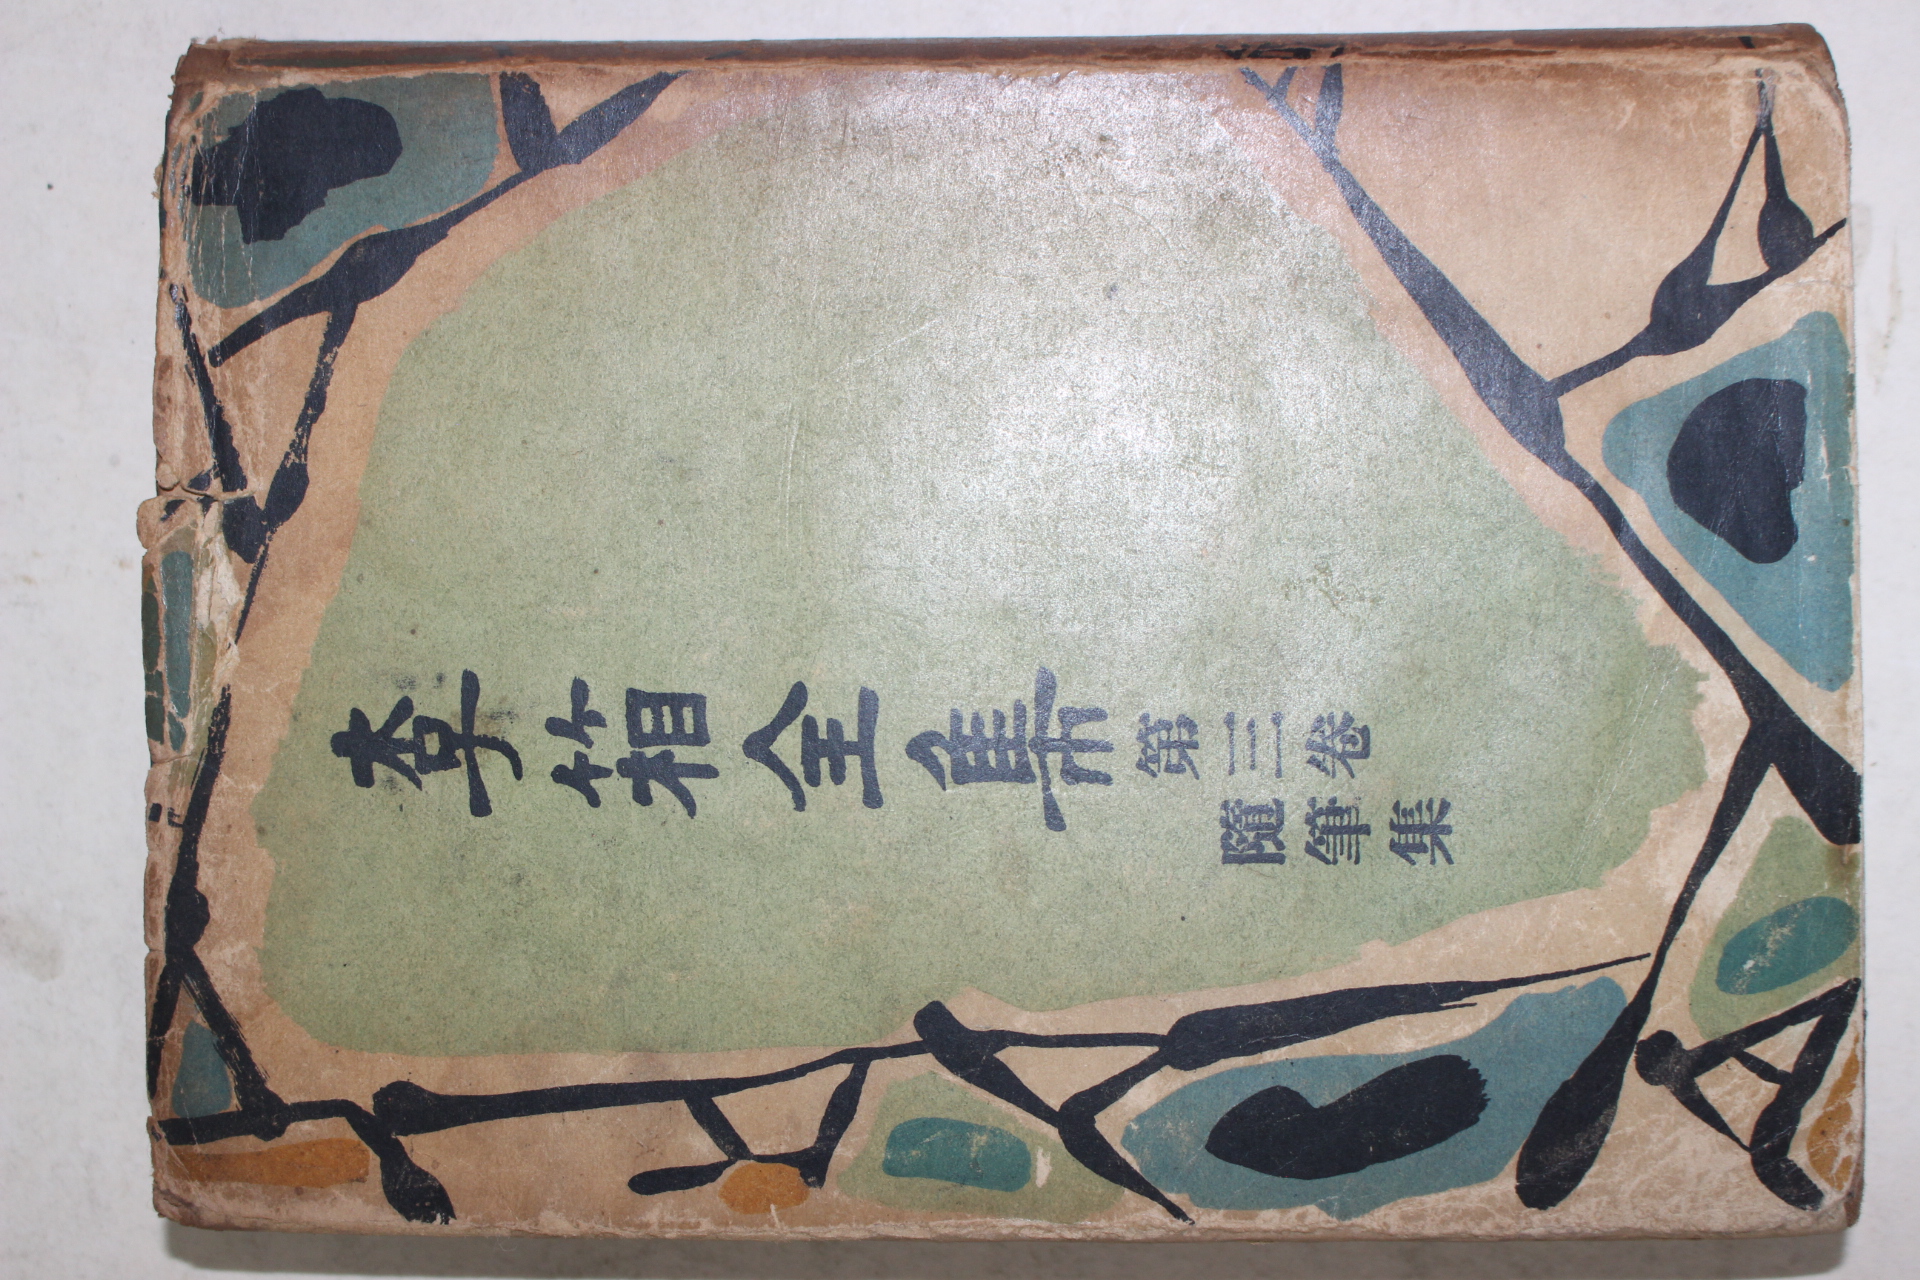 李箱全集
第三卷
隨筆集